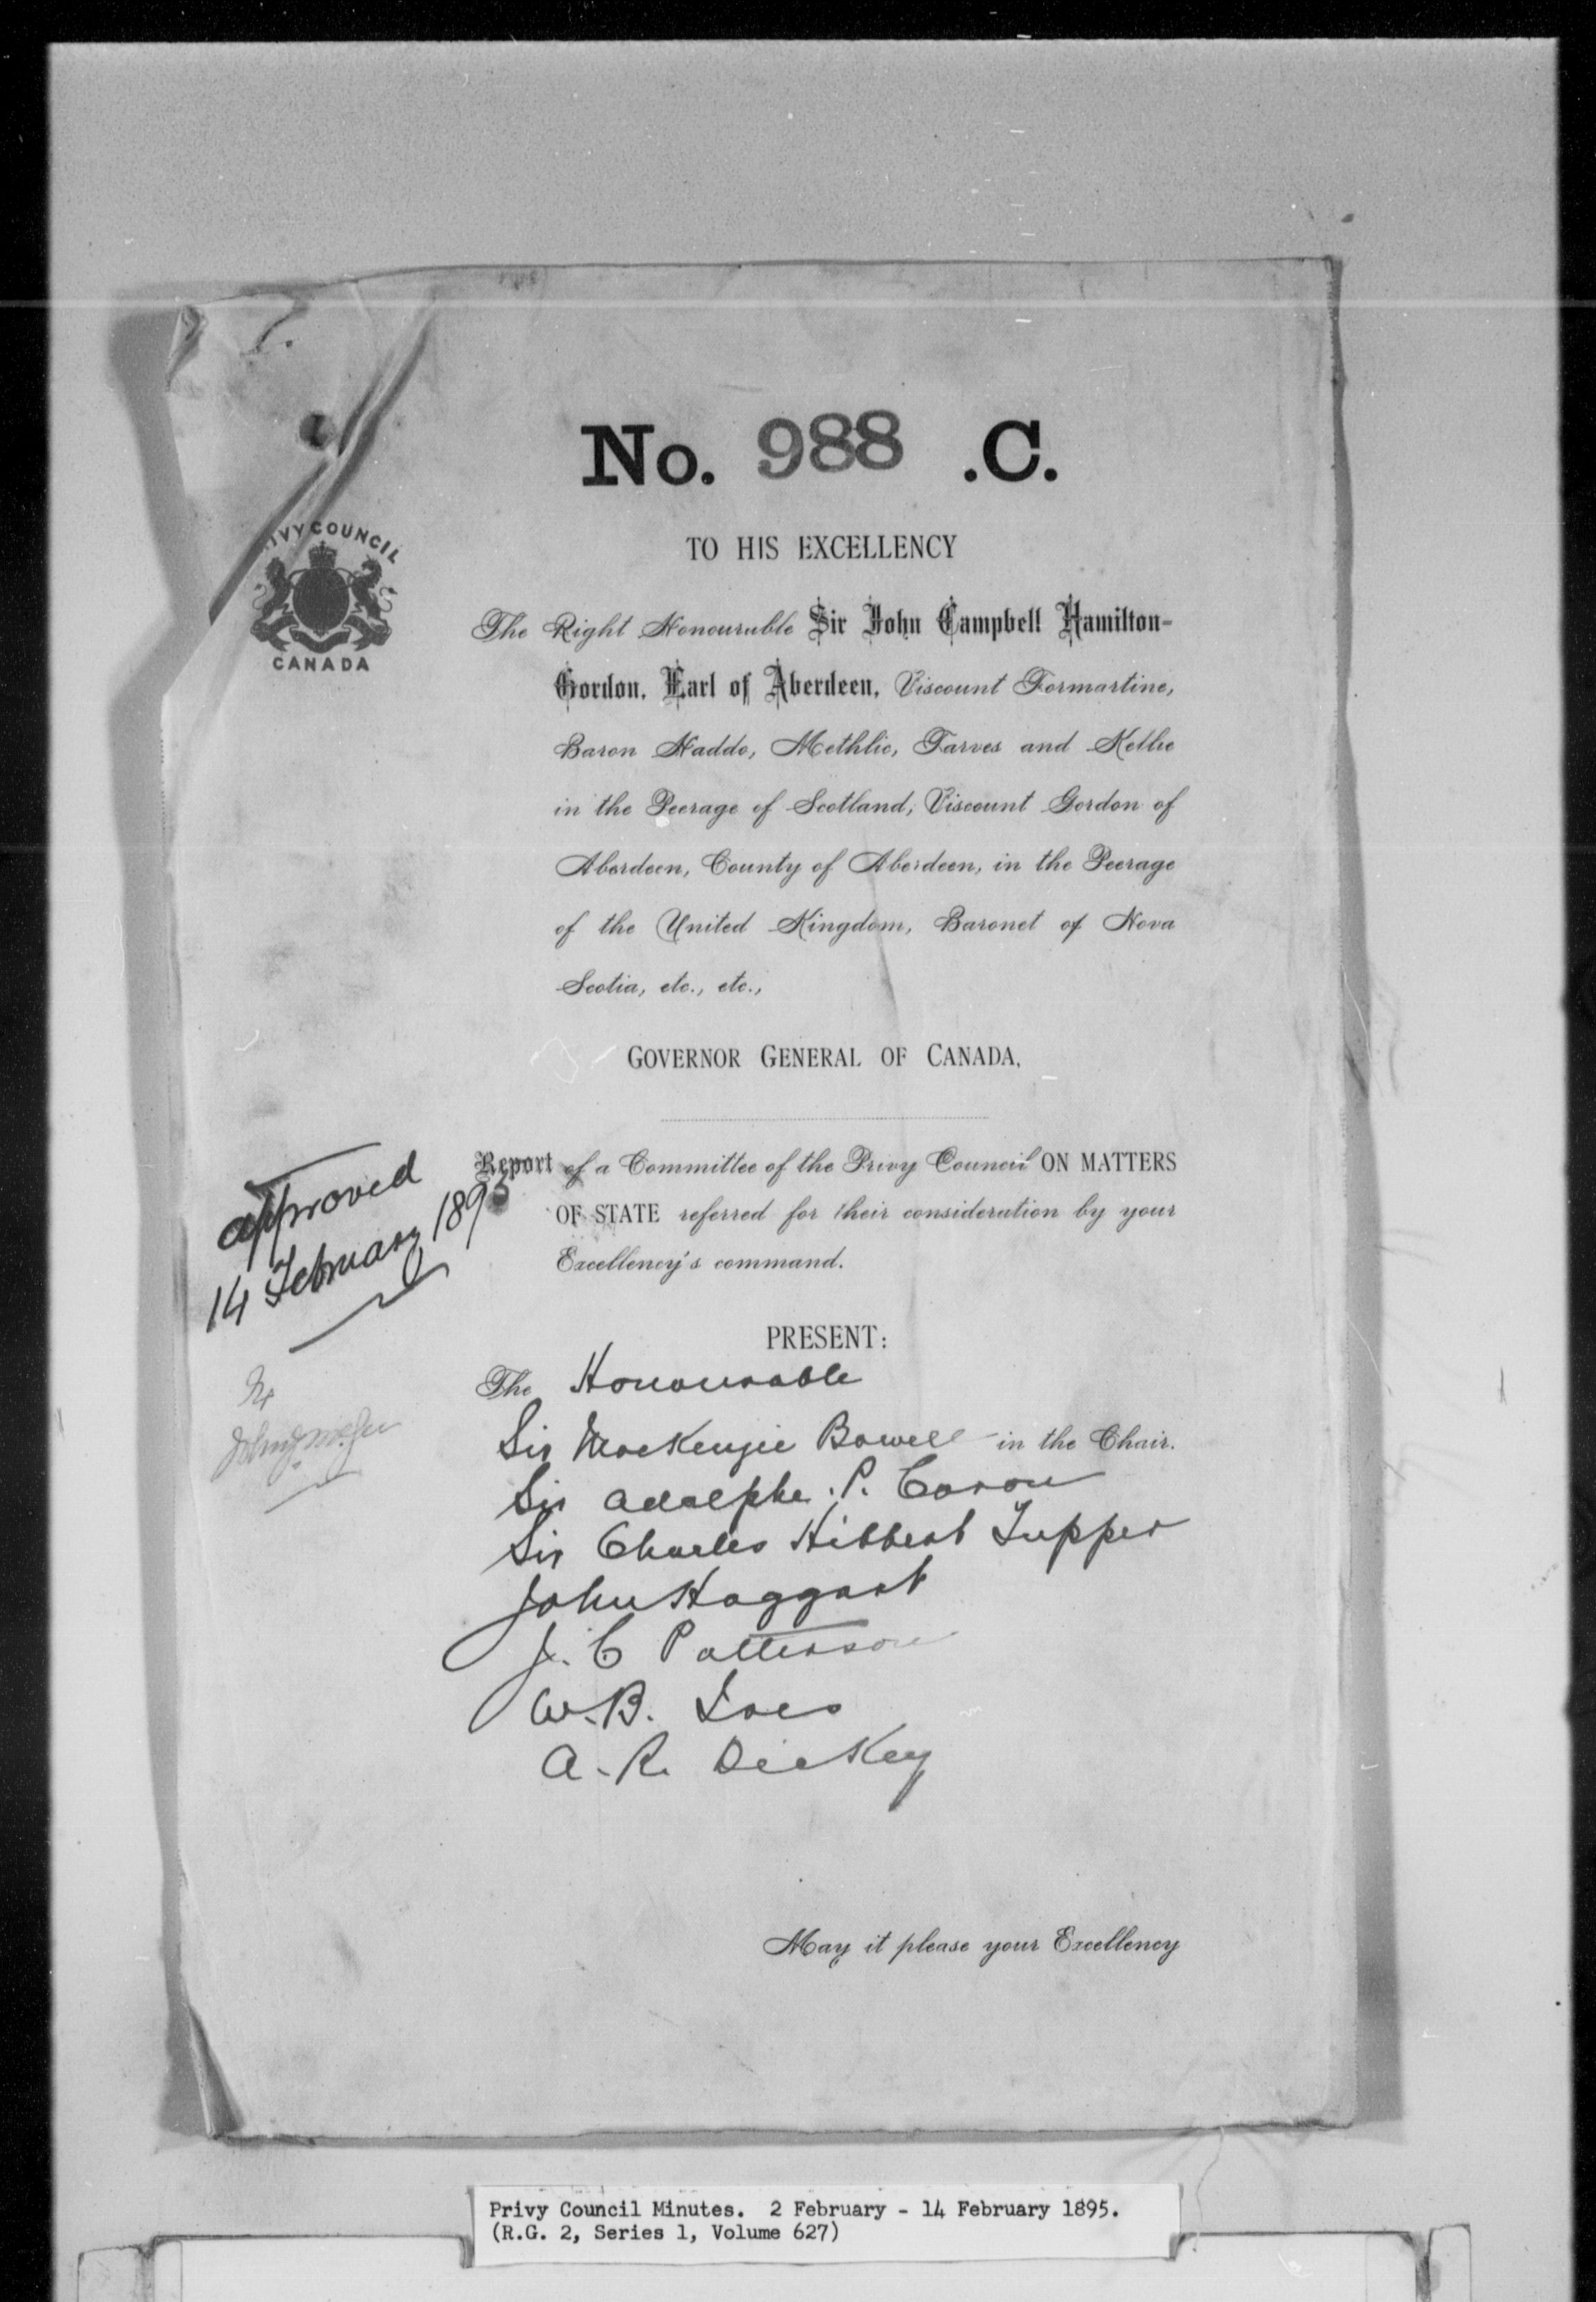 7.
No. 988 .C.
IVY COUNCIL
CANADA
TO HIS EXCELLENCY
The Right Honourable Sir John Campbell Hamilton-
Gordon, Earl of Aberdeen, Viscount Formartine,
Baron Haddo, Methlic, Tarves and Kellie
in the Peerage of Scotland; Viscount Gordon of
Aberdeen, County of Aberdeen, in the Peerage
of the United Kingdom, Baronet of Nova
Scotia, etc., etc.,
GOVERNOR GENERAL OF CANADA,
Report of a Committee of the Privy Council ON MATTERS
OF STATE referred for their consideration by your
Excellency's command.
approved
14 February 1895
PRESENT:
The Honourable
Sir MacKenzie Bowell in the Chair.
Sir Adolphe. P. Caron
Sir Charles Hibbert Tupper
John Haggart
J. C Patterson
W. B. Ives
A. R. Dickey
May it please your Excellency
Privy Council Minutes. 2 February - 14 February 1895.
(R.G. 2, Series 1, Volume 627)